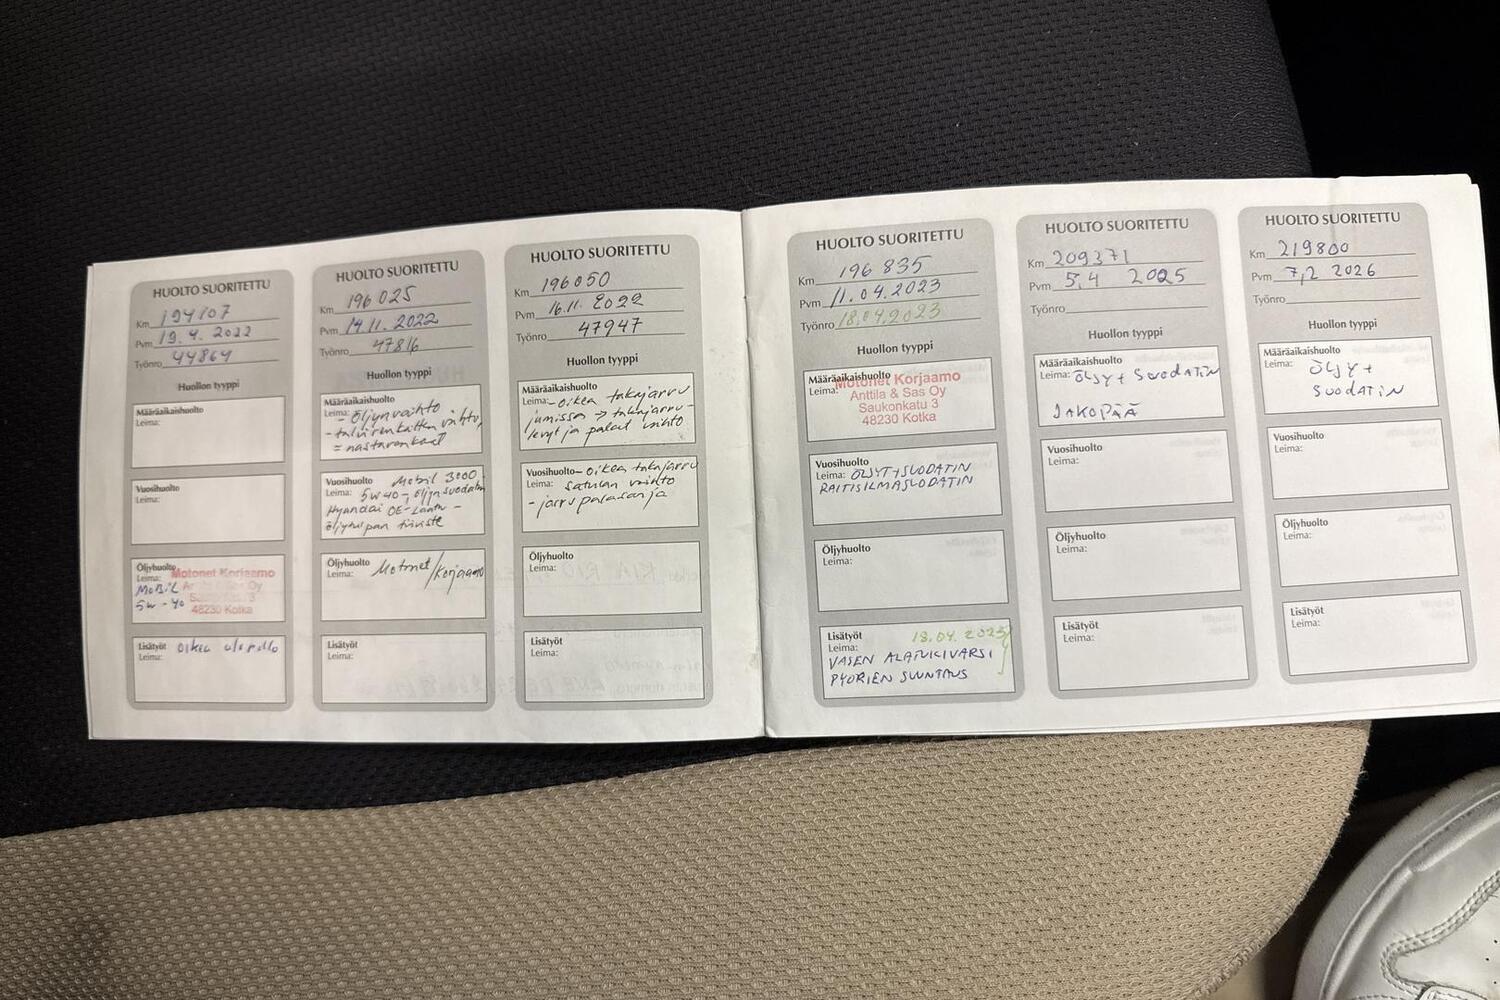 HUOLTO SUORITETTU
Km 194107
Pvm 19.4. 2022
Työnro 44864
Huollon tyyppi
Määräaikaishuolto
Leima:
Vuosihuolto
Leima:
Öljyhuolto
Leima:
MOBIL
5W-40
Motonet Korjaamo
Anttila & Sas Oy
Saukonkatu 3
48230 Kotka
Lisätyöt
Leima: Oikea
HUOLTO SUORITETTU
Km 196 025
Pvm 14.11. 2022
Työnro 47816
Huollon tyyppi
Määräaikaishuolto
Leima: - Öljynvaihto
- talvirenkaitten vaihto,
= nastarenkaat
Vuosihuolto Mobil 3000
Leima: 5W40-, öljynsuodatin
Hyundai OE-Laatu -
öljytulpan tiiviste
Öljyhuolto
Leima: Motonet/Korjaamo
Lisätyöt
Leima:
HUOLTO SUORITETTU
Km 196050
Pvm 16.11. 2022
Työnro 47947
Huollon tyyppi
Määräaikaishuolto
Leima: - oikea takajarru
jumissa → takajarru-
levyt ja palat vaihto
Vuosihuolto - oikea takajarru
Leima: satulan vaihto
- jarrupalasarja
Öljyhuolto
Leima:
Lisätyöt
Leima:
HUOLTO SUORITETTU
Km 196 835
Pvm 11.04.2023
Työnro 18.04.2023
Huollon tyyppi
Määräaikaishuolto
Leima:
Motonet Korjaamo
Anttila & Sas Oy
Saukonkatu 3
48230 Kotka
Vuosihuolto
Leima: ÖLJYT+SUODATIN
RAITISILMASUODATIN
Öljyhuolto
Leima:
Lisätyöt 18.04.2023
Leima:
VASEN ALATUKIVARSI
PYÖRIEN SUUNTAUS
HUOLTO SUORITETTU
Km 209371
Pvm 5.4 2025
Työnro
Huollon tyyppi
Määräaikaishuolto
Leima: ÖLJY + SUODATIN
JAKOPÄÄ
Vuosihuolto
Leima:
Öljyhuolto
Leima:
Lisätyöt
Leima:
HUOLTO SUORITETTU
Km 219800
Pvm 7,2 2026
Työnro
Huollon tyyppi
Määräaikaishuolto
Leima: ÖLJY +
SUODATIN
Vuosihuolto
Leima:
Öljyhuolto
Leima:
Lisätyöt
Leima: